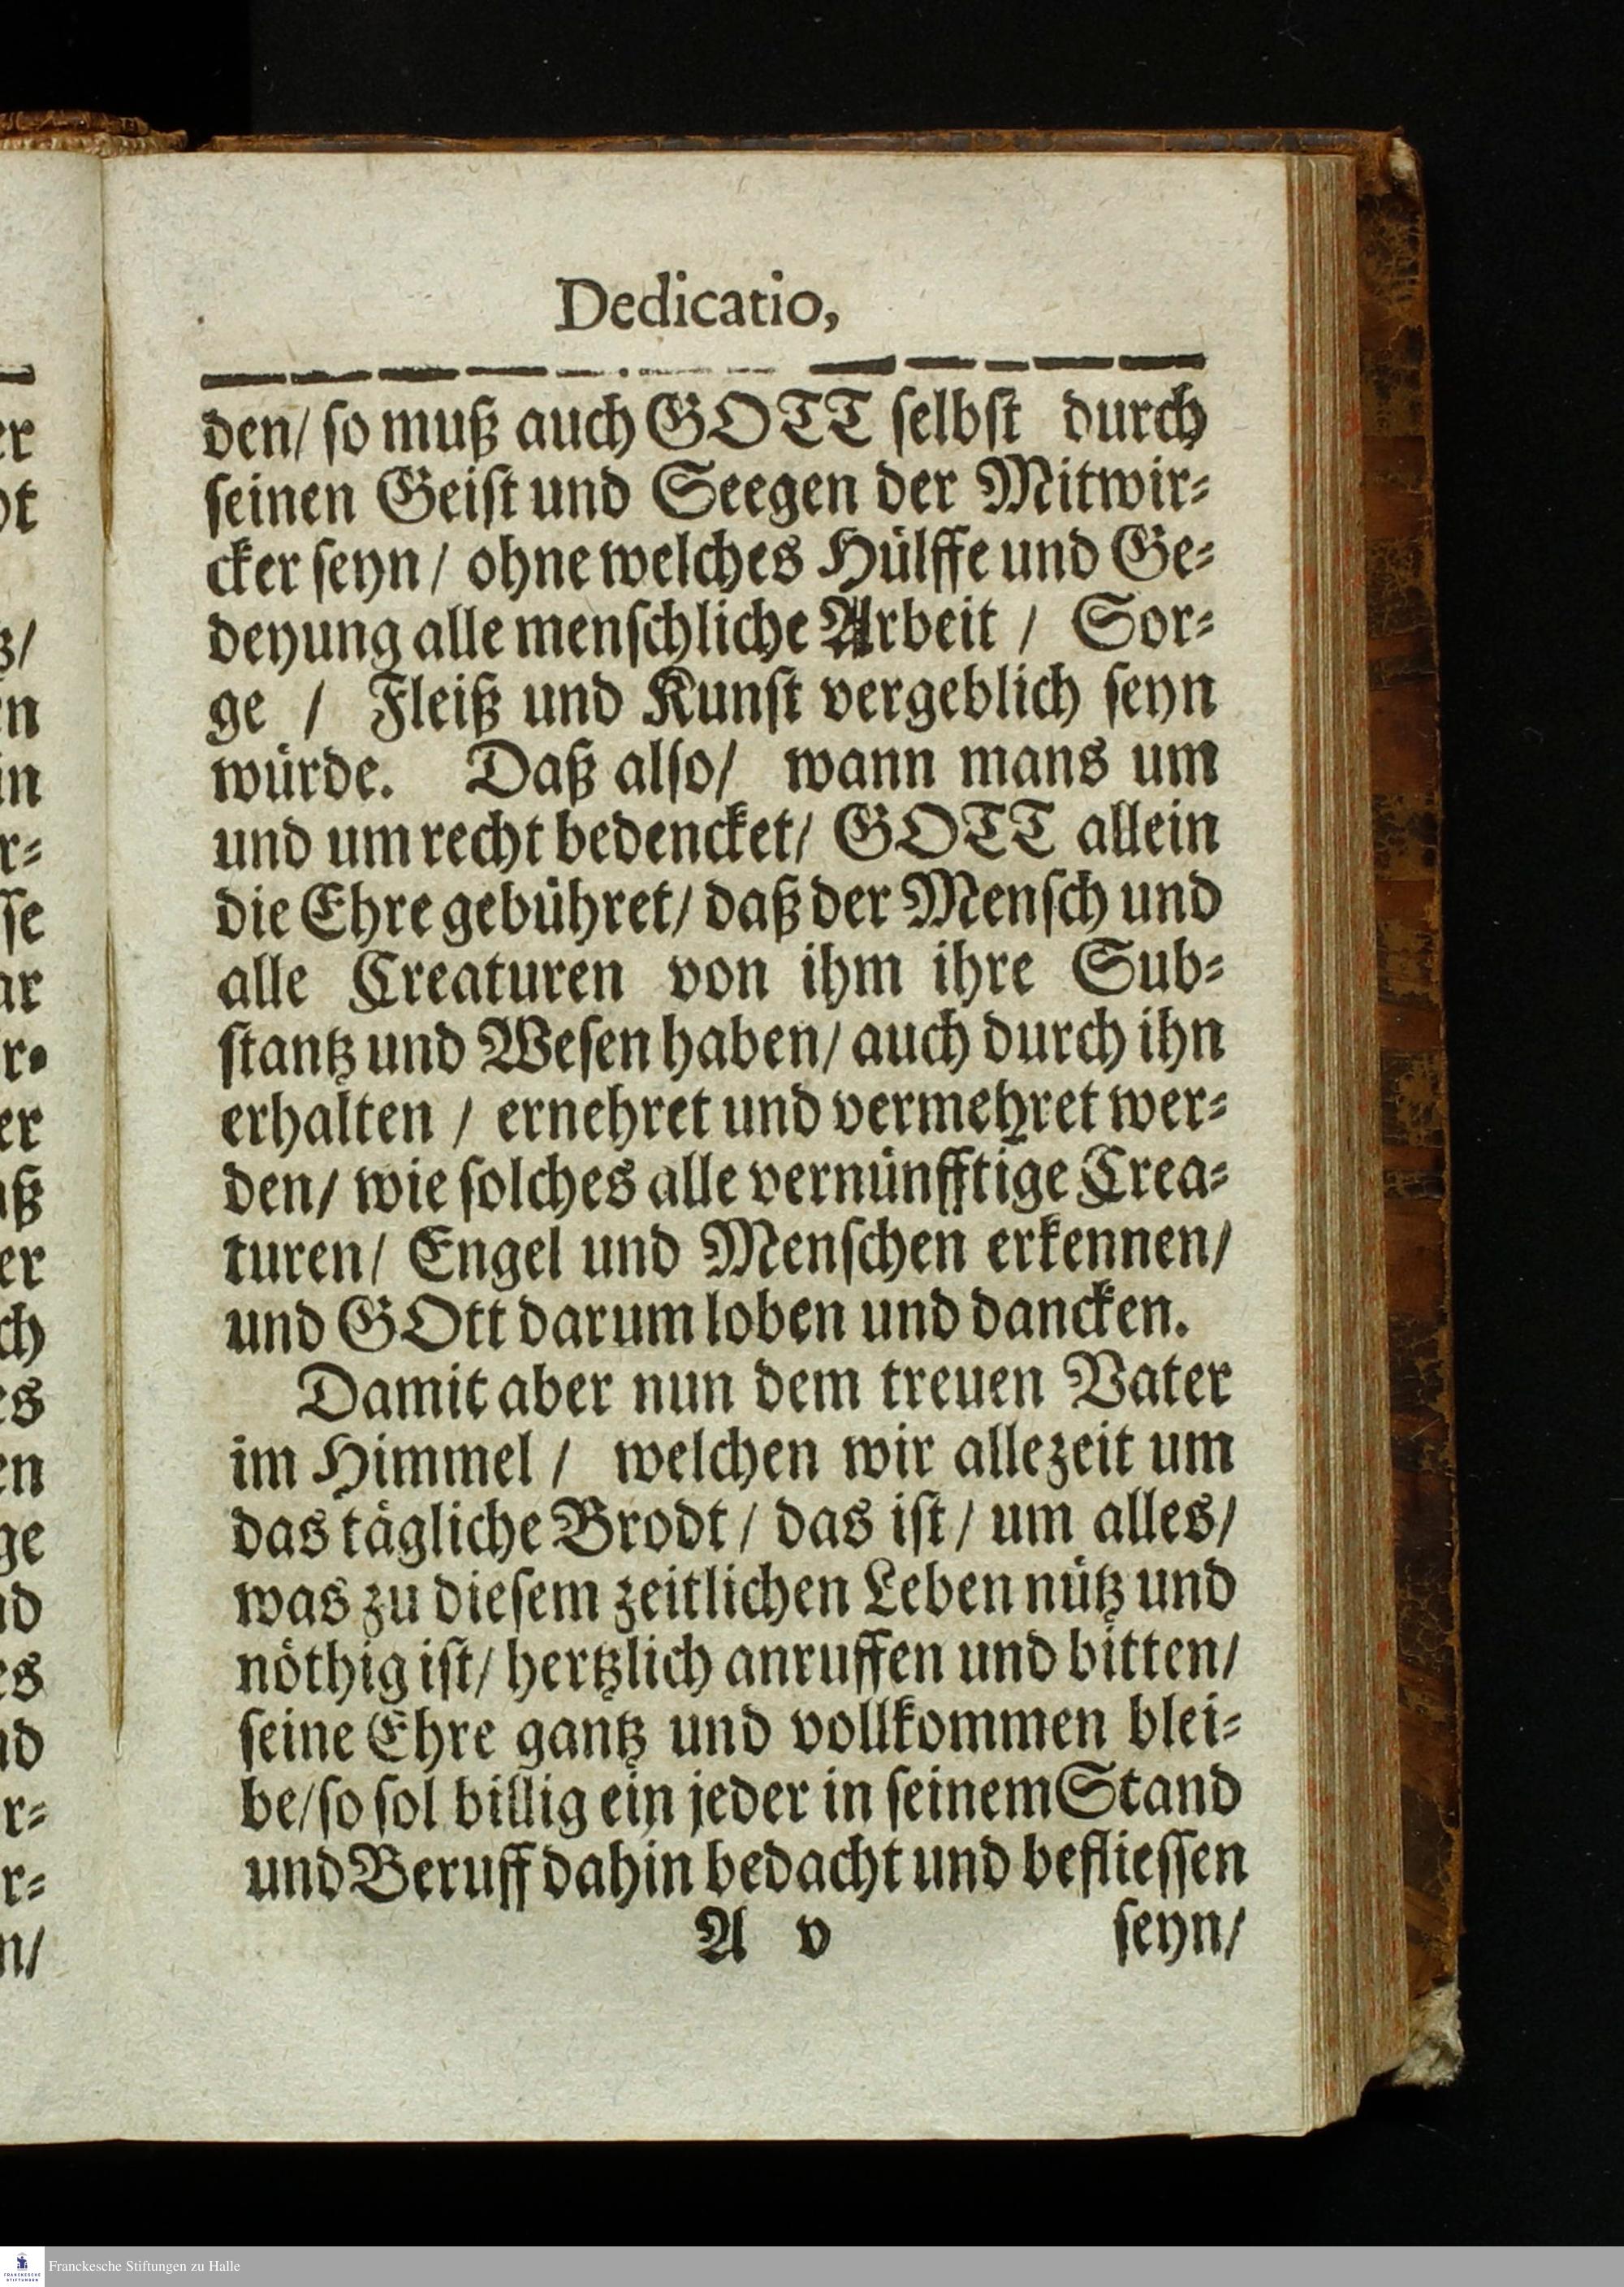 Dedicatio,
den/ so muß auch GOTT selbst durch
seinen Geist und Seegen der Mitwir-
cker seyn / ohne welches Hülffe und Ge-
deyung alle menschliche Arbeit / Sor-
ge / Fleiß und Kunst vergeblich seyn
würde. Daß also/ wann mans um
und um recht bedencket/ GOTT allein
die Ehre gebühret/ daß der Mensch und
alle Creaturen von ihm ihre Sub-
stantz und Wesen haben/ auch durch ihn
erhalten / ernehret und vermehret wer-
den/ wie solches alle vernünfftige Crea-
turen/ Engel und Menschen erkennen/
und GOtt darum loben und dancken.
Damit aber nun dem treuen Vater
im Himmel / welchen wir allezeit um
das tägliche Brodt / das ist / um alles/
was zu diesem zeitlichen Leben nütz und
nöthig ist/ hertzlich anruffen und bitten/
seine Ehre gantz und vollkommen blei-
be/ so sol billig ein jeder in seinem Stand
und Beruff dahin bedacht und befliessen
A v seyn/
Franckesche Stiftungen zu Halle